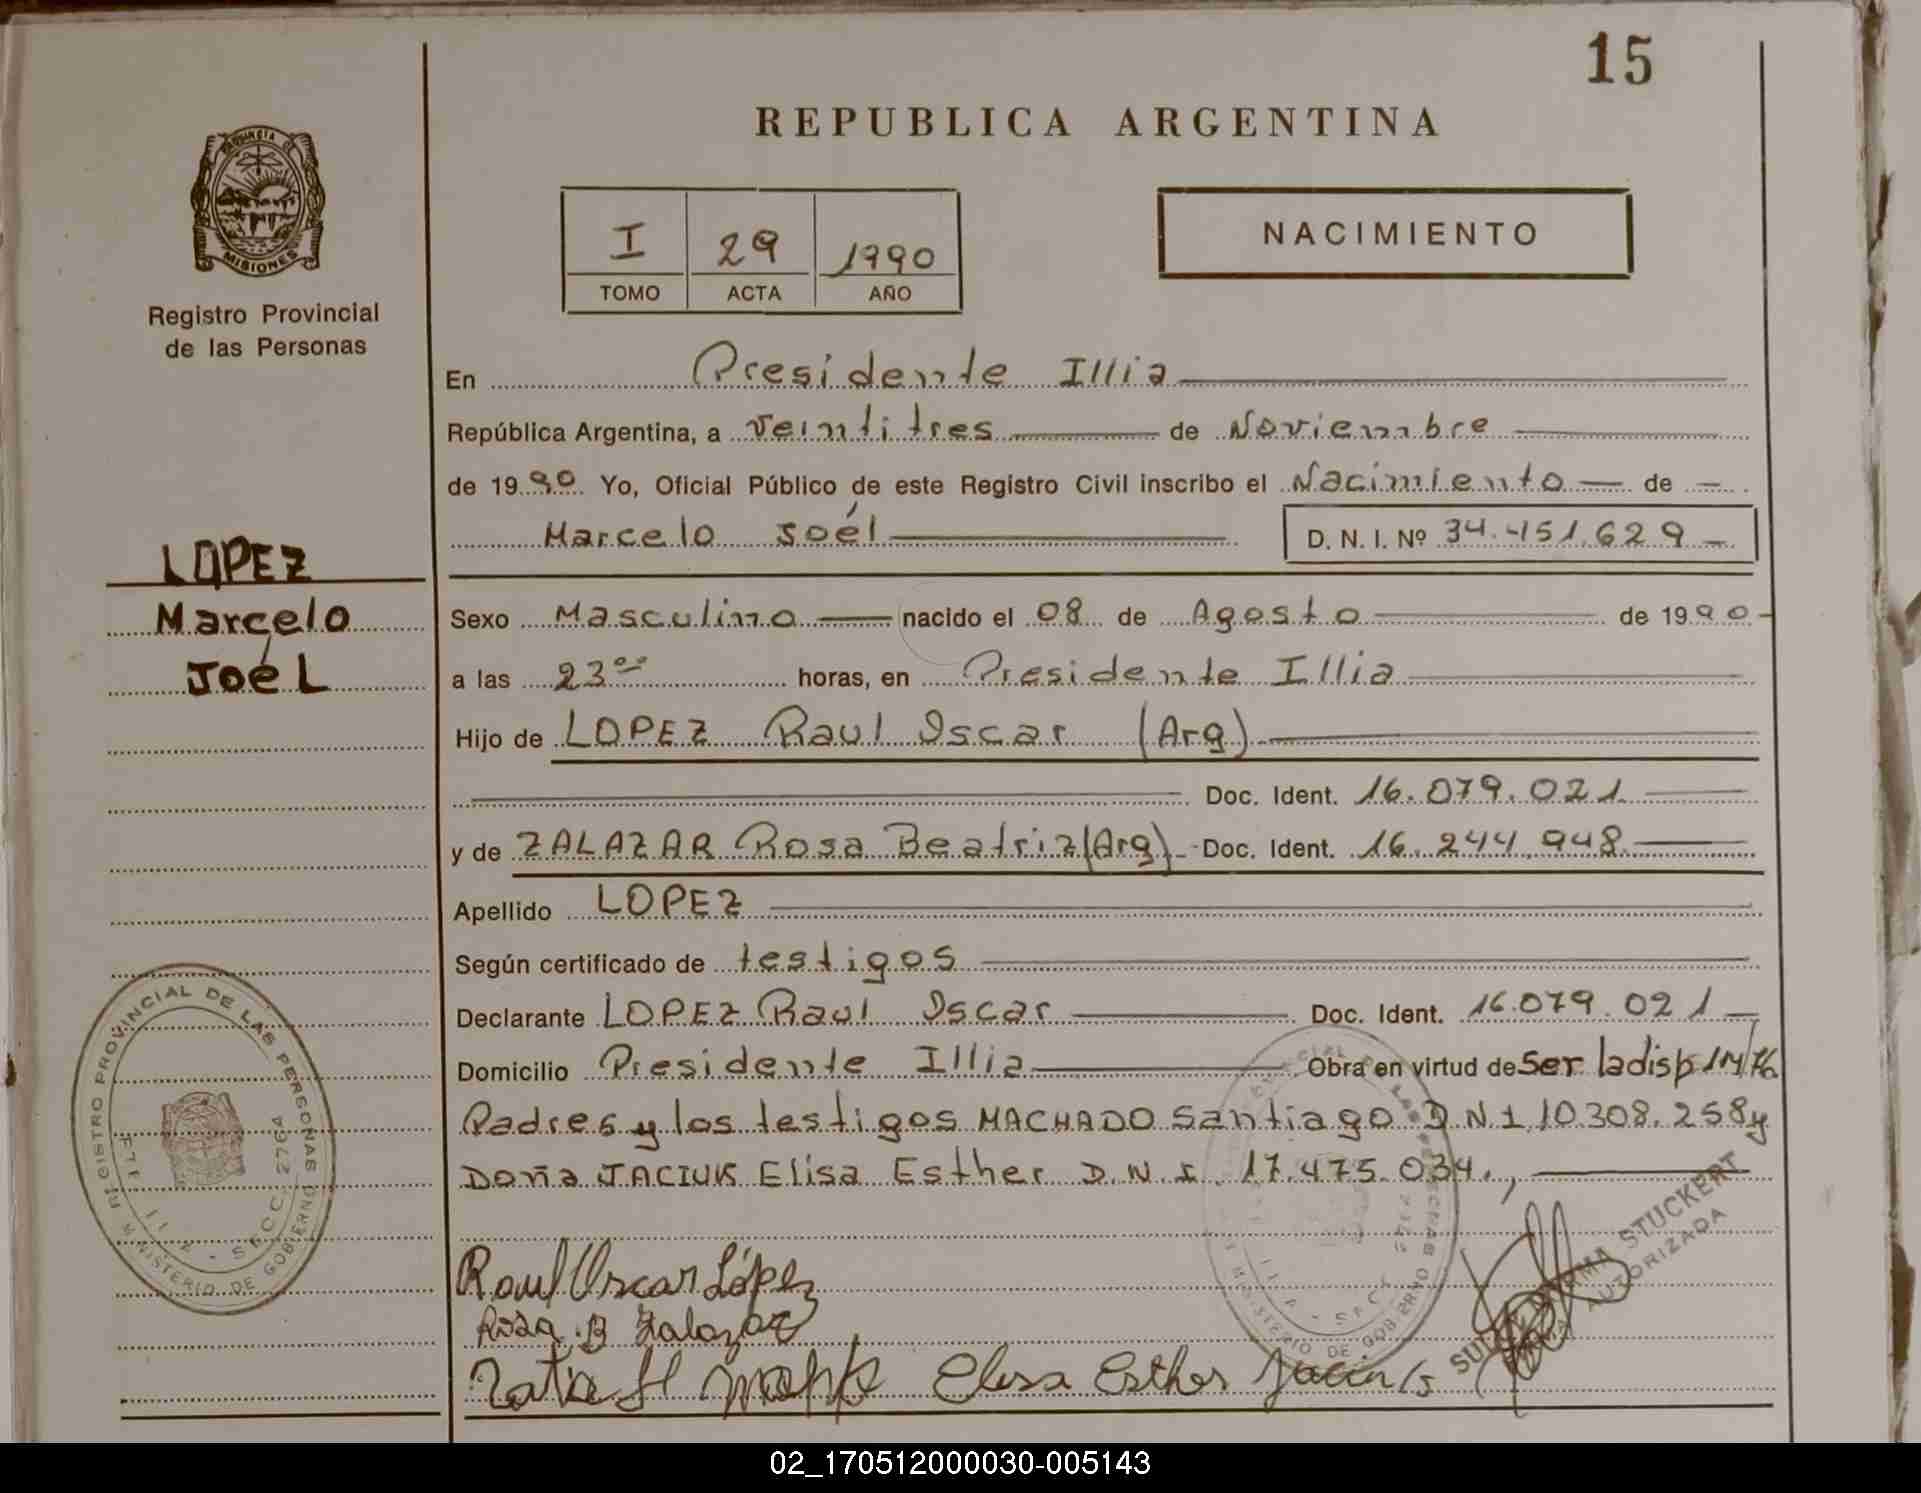 15
REPUBLICA ARGENTINA
PROVINCIA DE
MISIONES
Registro Provincial
de las Personas
I 29 1990
TOMO ACTA AÑO
NACIMIENTO
En Presidente Illia
República Argentina, a veintitres de Noviembre
de 1990. Yo, Oficial Público de este Registro Civil inscribo el Nacimiento de
Marcelo Joél D. N. I. Nº 34.451.629
LOPEZ
Marcelo
Joél
Sexo Masculino nacido el 08 de Agosto de 1990
a las 23⁰⁰ horas, en Presidente Illia
Hijo de LOPEZ Raul Oscar (Arg)
Doc. Ident. 16.079.021
y de ZALAZAR Rosa Beatriz (Arg) Doc. Ident. 16.244.948
Apellido LOPEZ
Según certificado de testigos
Declarante LOPEZ Raul Oscar Doc. Ident. 16.079.021
Domicilio Presidente Illia Obra en virtud de Ser
Padres y los testigos MACHADO Santiago D.N.I. 10.308.258 y
Doña JACIUK Elisa Esther D.N.I. 17.475.034.,
REGISTRO PROVINCIAL DE LAS PERSONAS
MINISTERIO DE GOBIERNO
SECC. 2764
STUCKERT
AUTORIZADA
Raul Oscar López
Rosa B Zalazar
Elisa Esther Jaciuk
02_170512000030-005143